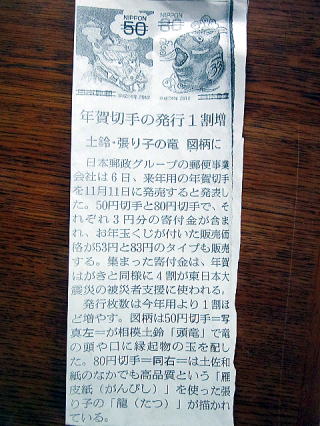 NIPPON
50
NIPPON
80
年賀切手の発行1割増
土鈴・張り子の竜 図柄に
日本郵政グループの郵便事業
会社は6日、来年用の年賀切手
を11月11日に発売すると発表し
た。50円切手と80円切手で、そ
れぞれ3円分の寄付金が含ま
れ、お年玉くじが付いた販売価
格が53円と83円のタイプも販売
する。集まった寄付金は、年賀
はがきと同様に4割が東日本大
震災の被災者支援に使われる。
発行枚数は今年用より1割ほ
ど増やす。図柄は50円切手＝写
真左＝が相模土鈴「頭竜」で竜
の頭や口に縁起物の玉を配し
た。80円切手＝同右＝は土佐和
紙のなかでも高品質という「雁
皮紙（がんぴし）」を使った張
り子の「龍（たつ）」が描かれ
ている。